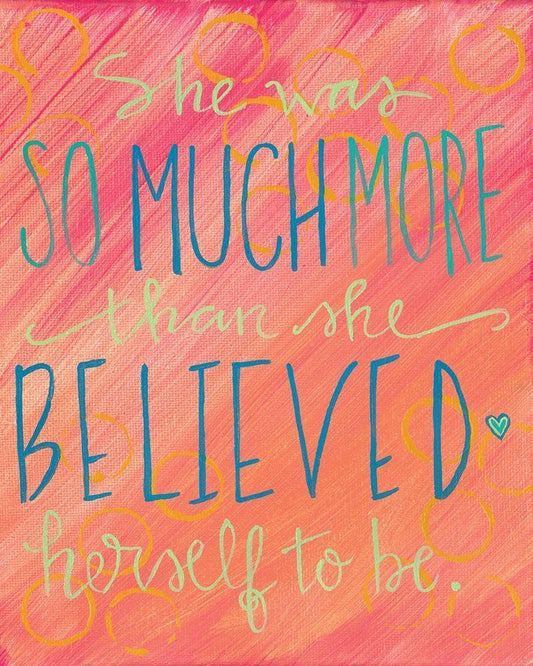 She was
SO MUCH MORE
than she
BELIEVED
herself to be.